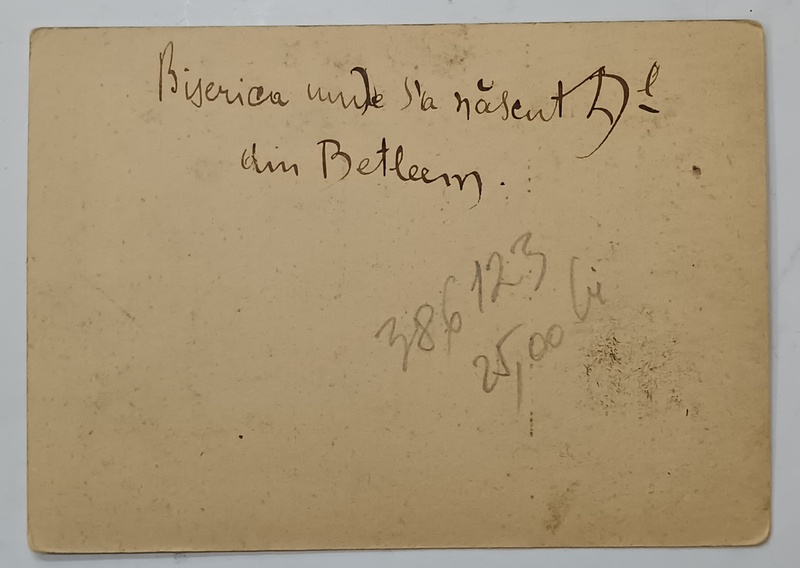 Biserica unde s'a născut Dl
din Betleem.
386123
25,00 lei